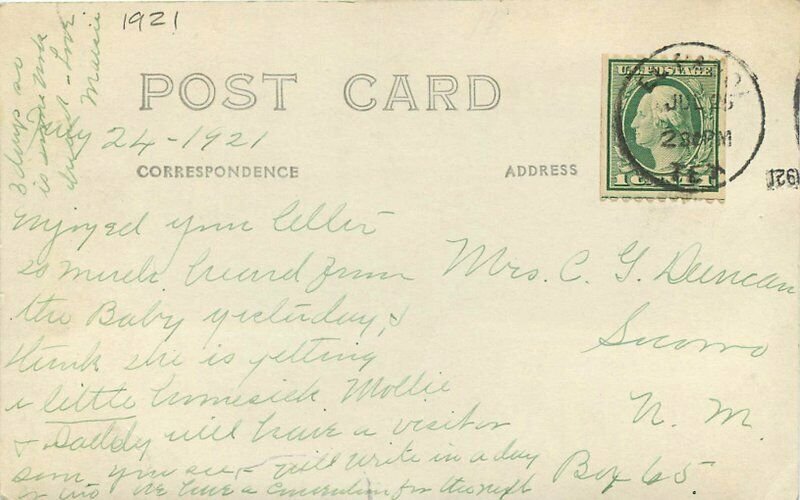 1921
POST CARD
July 24-1921
CORRESPONDENCE
ADDRESS
U.S. POSTAGE
JUL 25
230 PM
TEX
1921
Enjoyed your letter
so much. heard from
the Baby yesterday, &
think she is getting
a little homesick Mollie
& Daddy will have a visitor
soon you see, - will write in a day
or two We have a Convention for the next
3 days so
is some work
ahead - Love
Mrs. C. G. Duncan
Socorro
N. M.
Box 65